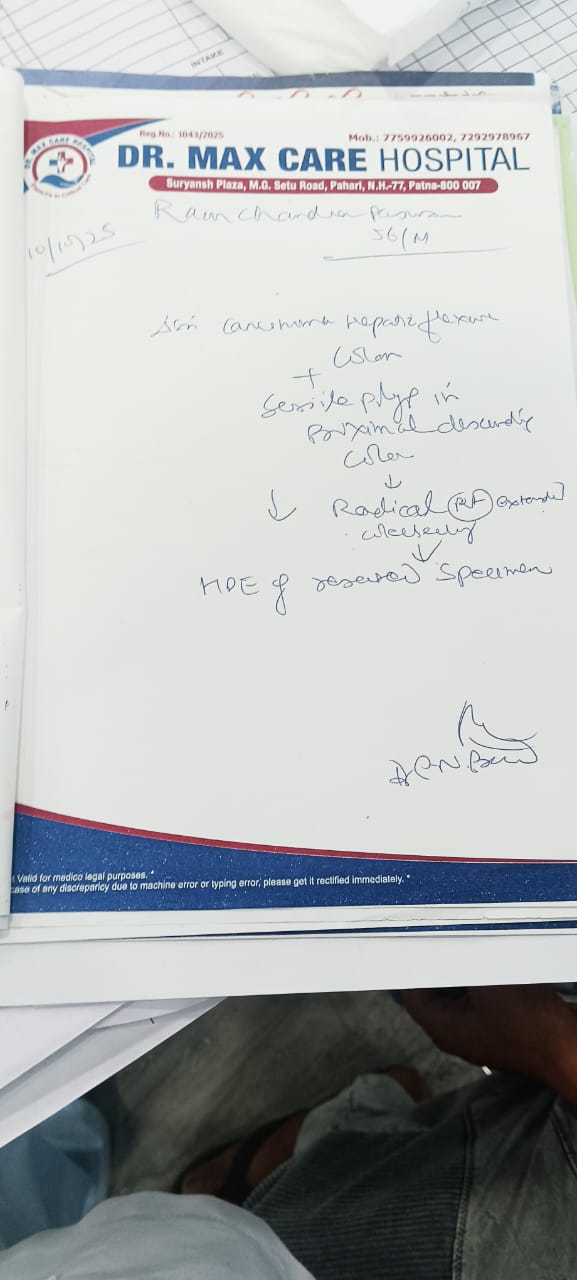 INTAKE
Reg.No.: 1043/2025
Mob.: 7759926002, 7292978967
DR. MAX CARE HOSPITAL
Suryansh Plaza, M.G. Setu Road, Pahari, N.H.-77, Patna-800 007
Ram Chandra
56/M
Carcinoma Hepatic flexure
Colon
+
Sessile polyp in
Proximal descending
Colon
↓
↓ Radical (Rt) extended
↓
HPE of resected Specimen
Valid for medico legal purposes. *
case of any discreparicy due to machine error or typing error, please get it rectified immediately. *